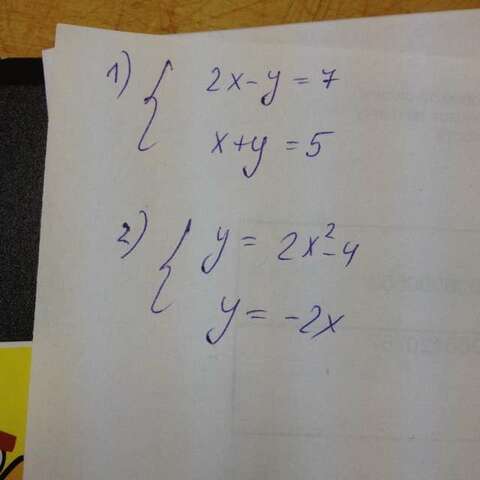 1) { 2x-y=7
x+y=5
2) { y= 2x²-4
y=-2x